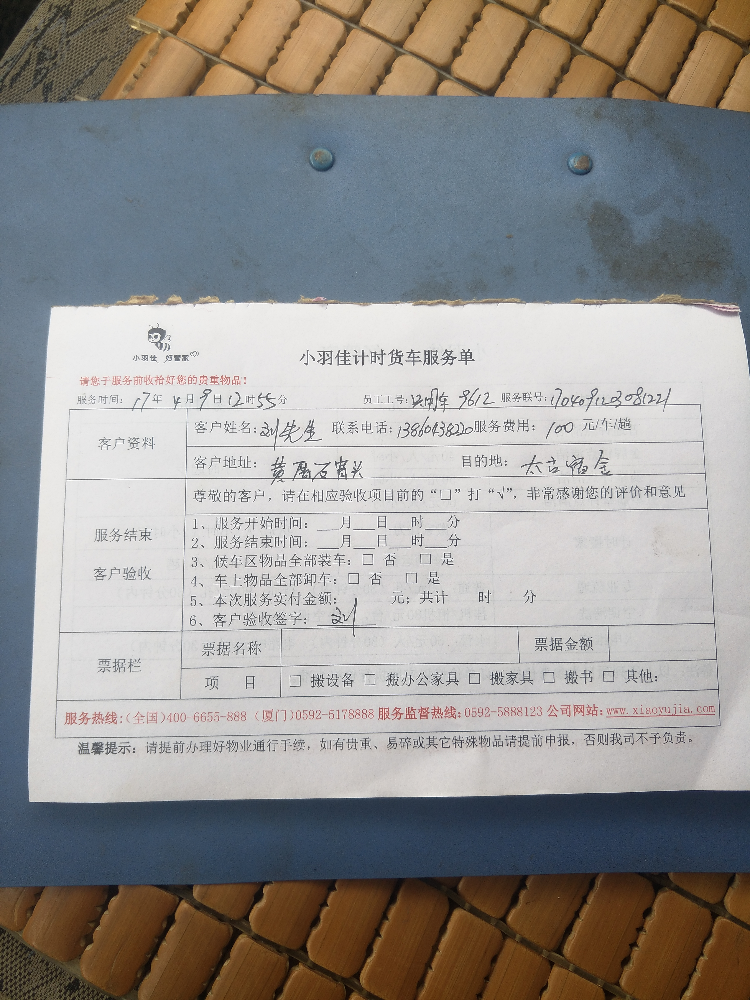 小羽佳 好管家
小羽佳计时货车服务单
请您于服务前收拾好您的贵重物品!
服务时间: 17年4月9日12时55分 员工工号: 9612 服务联号:
客户资料
客户姓名: 刘先生 联系电话: 服务费用: 100 元/车/趟
客户地址: 黄厝石胄头 目的地:
尊敬的客户,请在相应验收项目前的“□”打“√”,非常感谢您的评价和意见
服务结束
客户验收
1、服务开始时间:___月___日___时___分
2、服务结束时间:___月___日___时___分
3、候车区物品全部装车:□ 否 □ 是
4、车上物品全部卸车:□ 否 □ 是
5、本次服务实付金额: 元;共计 时 分
6、客户验收签字: 刘
票据栏
票据名称 票据金额
项 目 □ 搬设备 □ 搬办公家具 □ 搬家具 □ 搬书 □ 其他:
服务热线:(全国)400-6655-888 (厦门)0592-5178888 服务监督热线:0592-5888123 公司网站:www.xiaoyujia.com
温馨提示:请提前办理好物业通行手续,如有贵重、易碎或其它特殊物品请提前申报,否则我司不予负责。